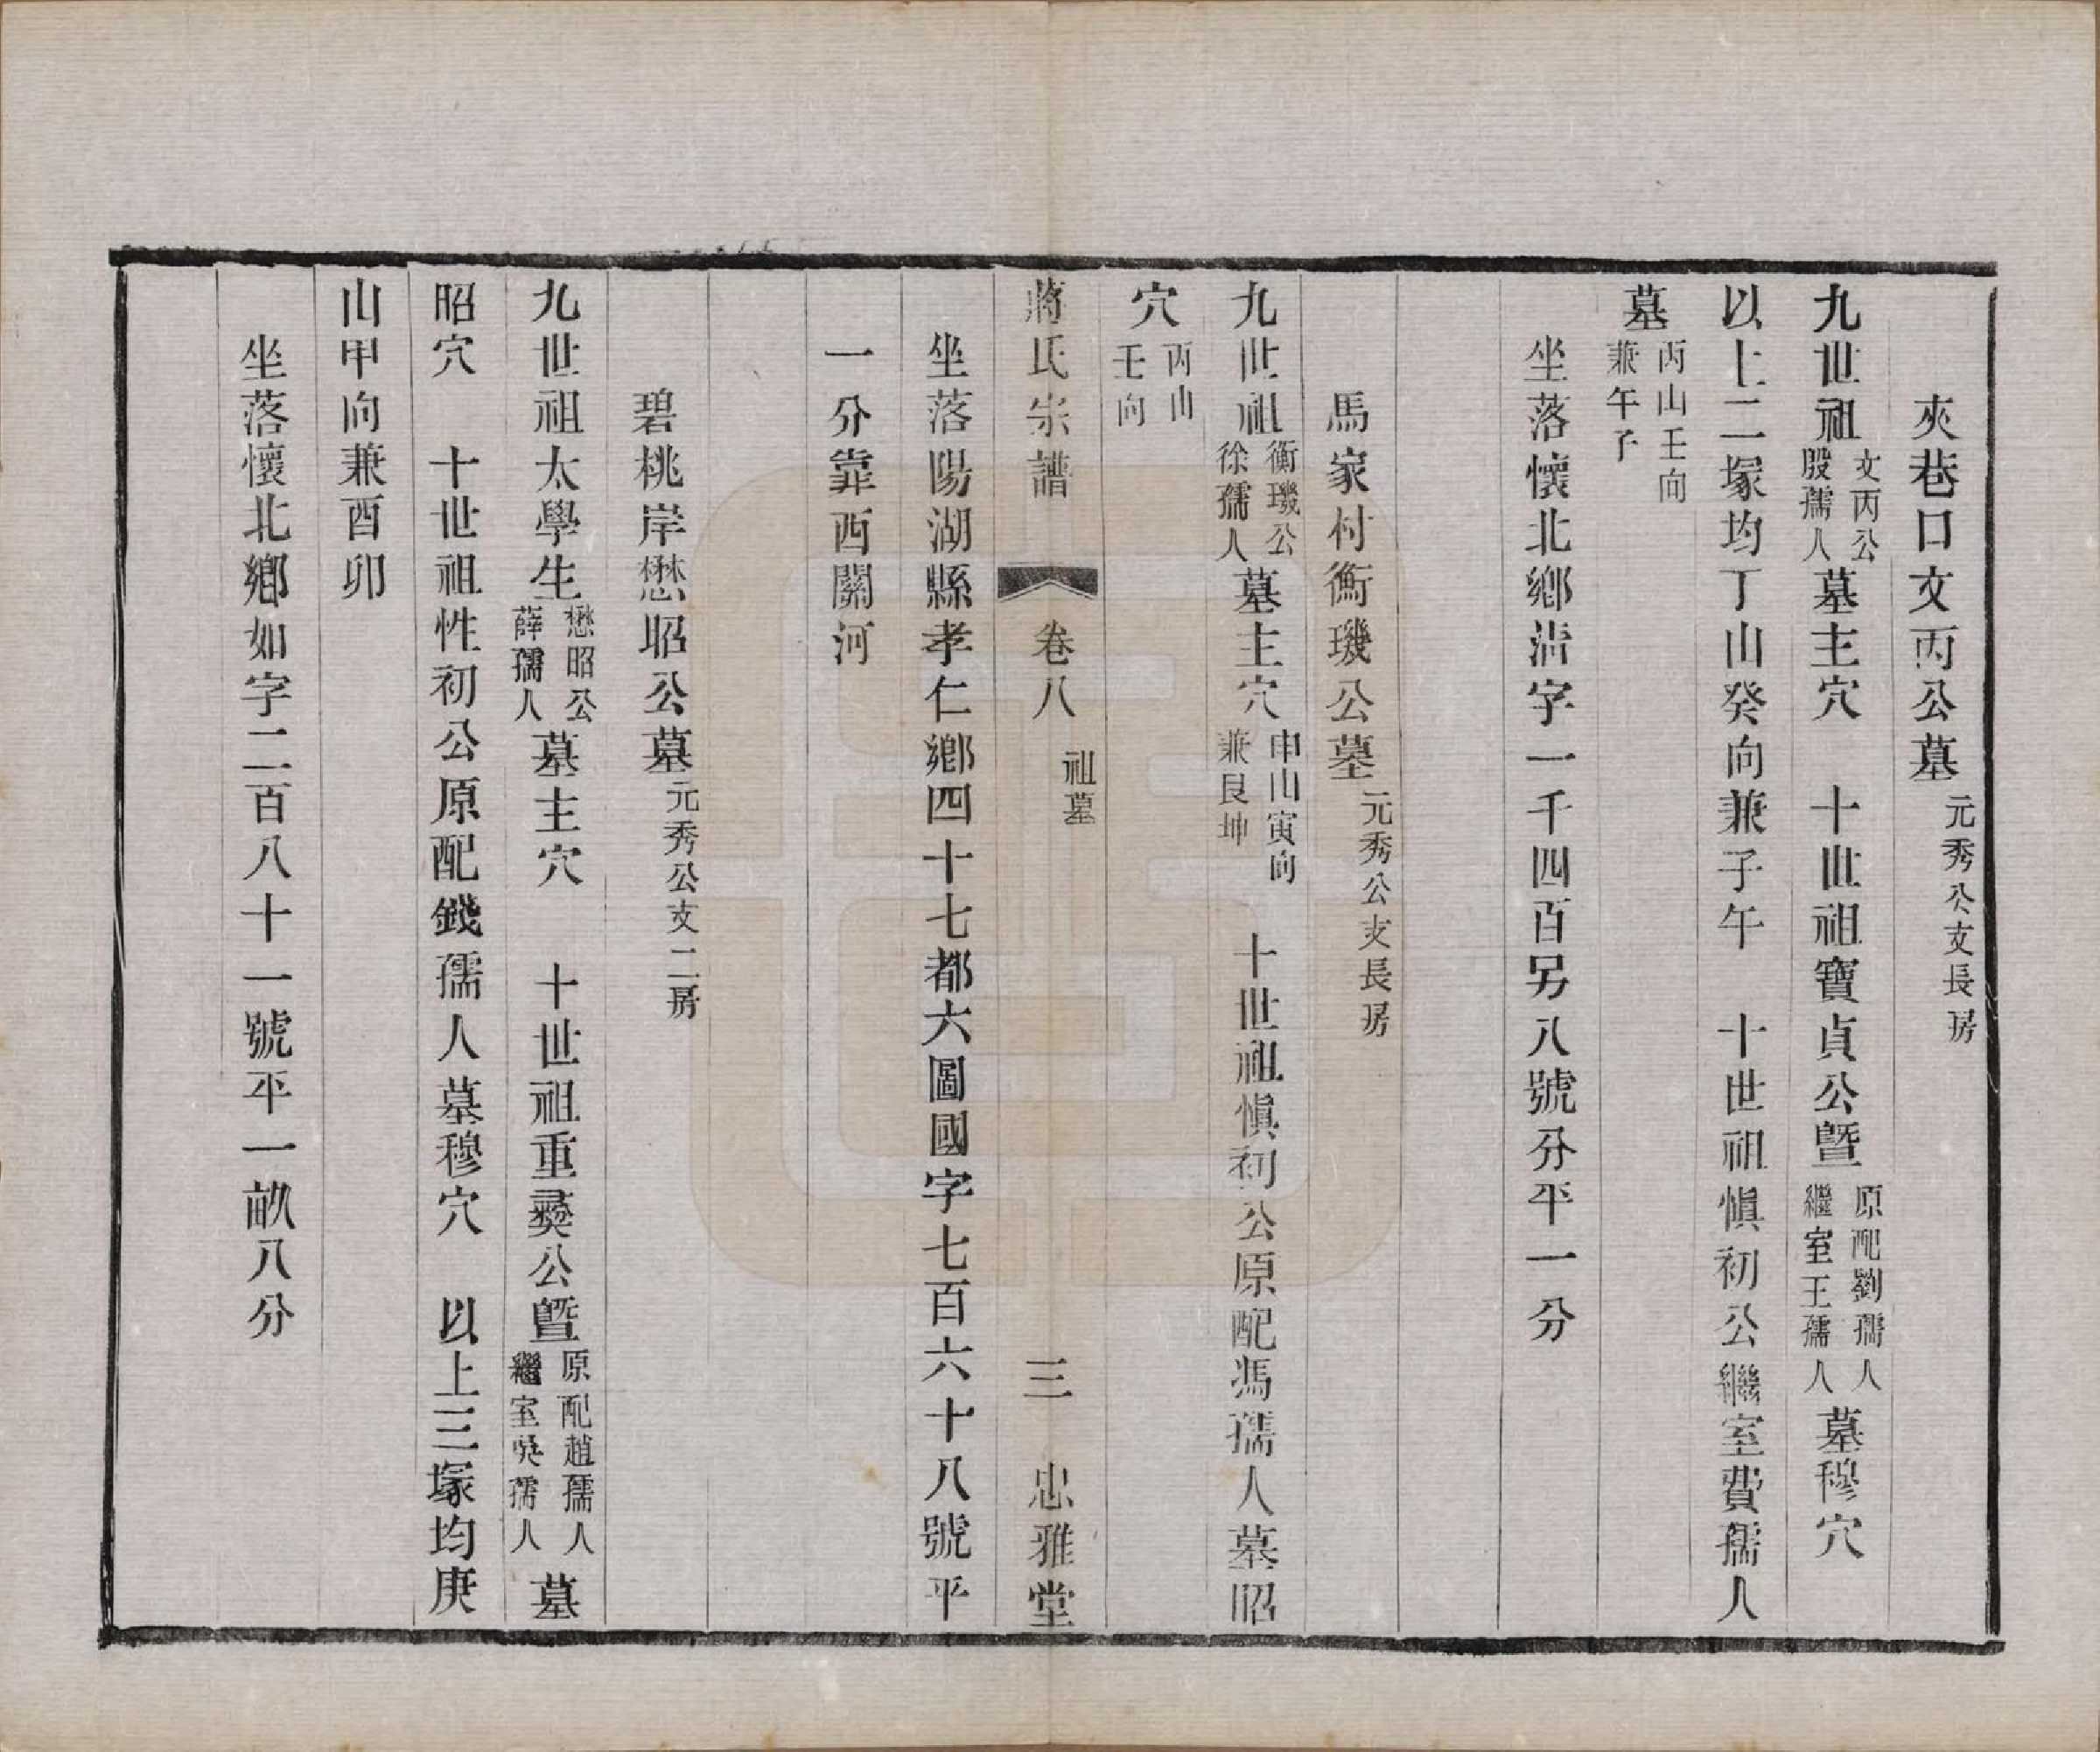 夾巷口文丙公墓元秀公支長房
九世祖文丙公殷孺人墓主穴　十世祖寶貞公暨原配劉孺人繼室王孺人墓穆穴
以上二塚均丁山癸向兼子午　十世祖慎初公繼室費孺人
墓丙山壬向兼午子
坐落懷北鄉清字一千四百另八號分平一分
馬家村衡璣公墓元秀公支長房
九世祖衡璣公徐孺人墓主穴申山寅向兼艮坤　十世祖慎初公原配馮孺人墓昭
穴丙山壬向
蔣氏宗譜　卷八　祖墓　三　忠雅堂
坐落陽湖縣孝仁鄉四十七都六圖國字七百六十八號平
一分靠西關河
碧桃岸懋昭公墓元秀公支二房
九世祖太學生懋昭公薛孺人墓主穴　十世祖重彝公暨原配趙孺人繼室吳孺人墓
昭穴　十世祖性初公原配錢孺人墓穆穴　以上三塚均庚
山甲向兼酉卯
坐落懷北鄉如字二百八十一號平一畝八分